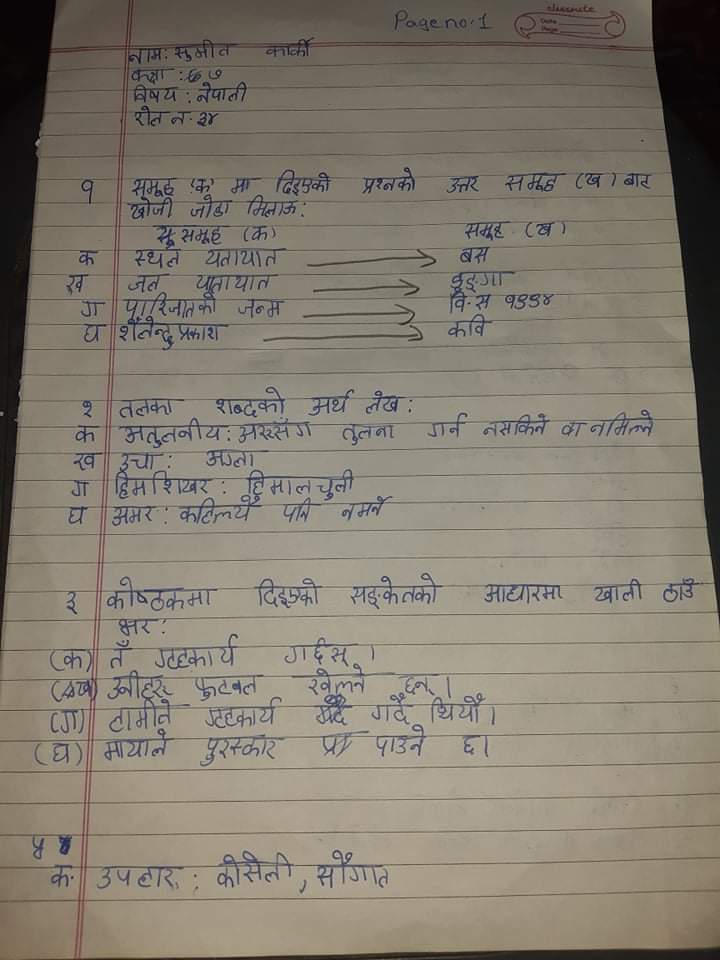 Page no. 1
classmate
Date
Page
नाम: सुमीत कार्की
कक्षा : ६
विषय : नेपाली
रोल न. ३४
१ समूह 'क' मा दिइएको प्रश्नको उत्तर समूह (ख) बाट
खोजी जोडा मिलाऊ:
समूह (क) समूह (ख)
क स्थल यतायात → बस
ख जल यातायात → डुङ्गा
ग पारिजातको जन्म → वि.स १९९४
घ शैलेन्दु प्रकाश → कवि
२ तलका शब्दको अर्थ लेख:
क अतुलनीय: अरुसँग तुलना गर्न नसकिने वा नमिल्ने
ख उचा: अग्ला
ग हिमशिखर: हिमालचुली
घ अमर: कहिल्यै पनि नमर्ने
३ कोष्ठकमा दिइएको सङ्केतको आधारमा खाली ठाउँ
भर:
(क) तँ गृहकार्य गर्छस्।
(ख) उनीहरू फुटबल खेल्ने छन्।
(ग) हामीले गृहकार्य गर्दै थियौँ।
(घ) मायाले पुरस्कार पाउने छ।
४
क. उपहार: कोसेली, सौगात